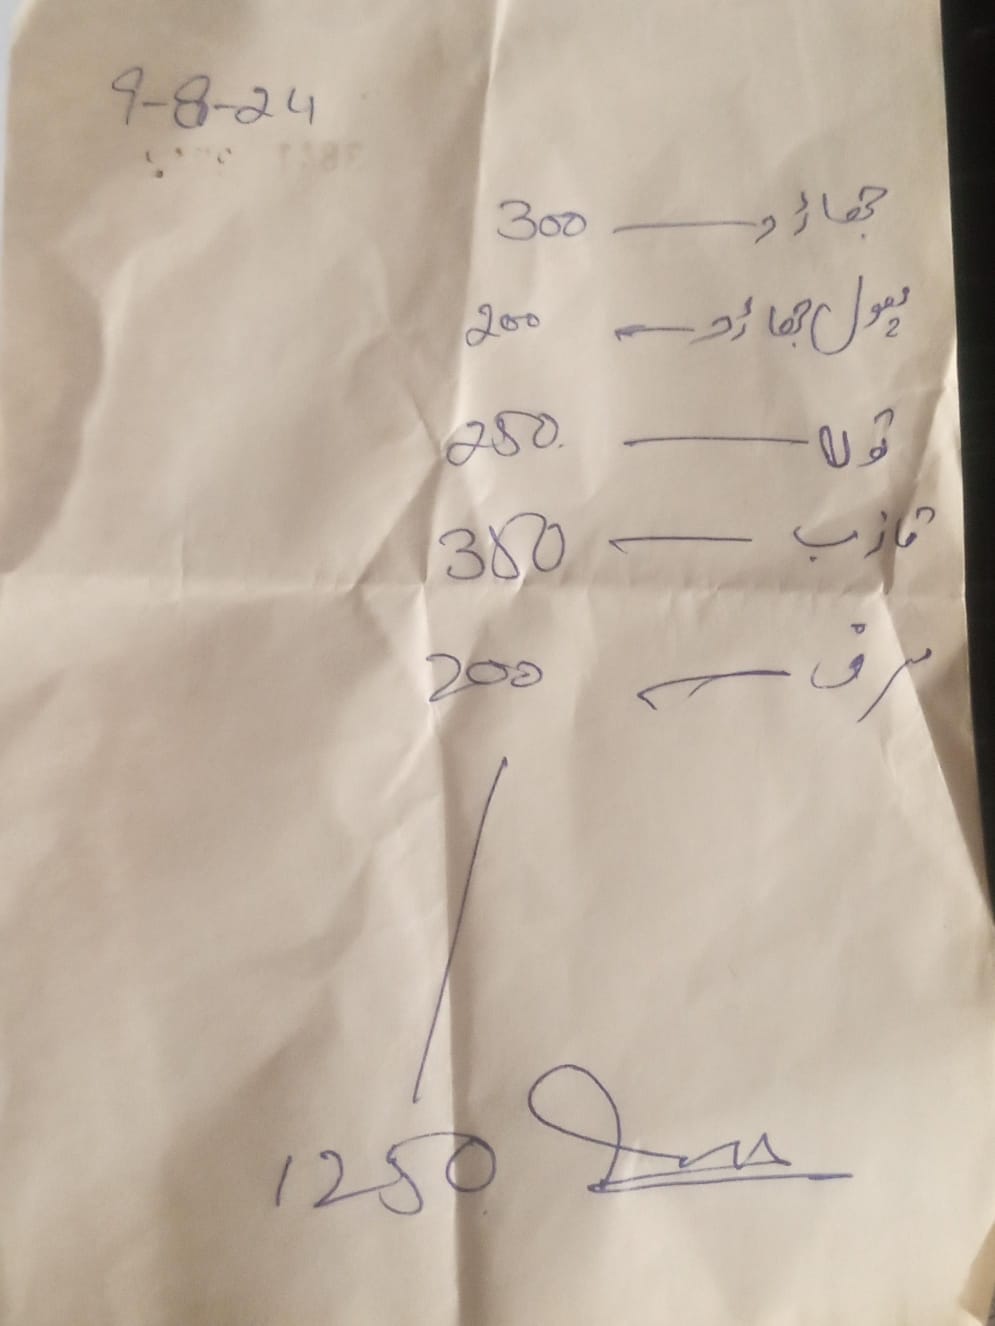 9-8-24
جھاڑو — 300
پھول جھاڑو — 200
تولا — 250
تازب — 350
سرف — 200
1250